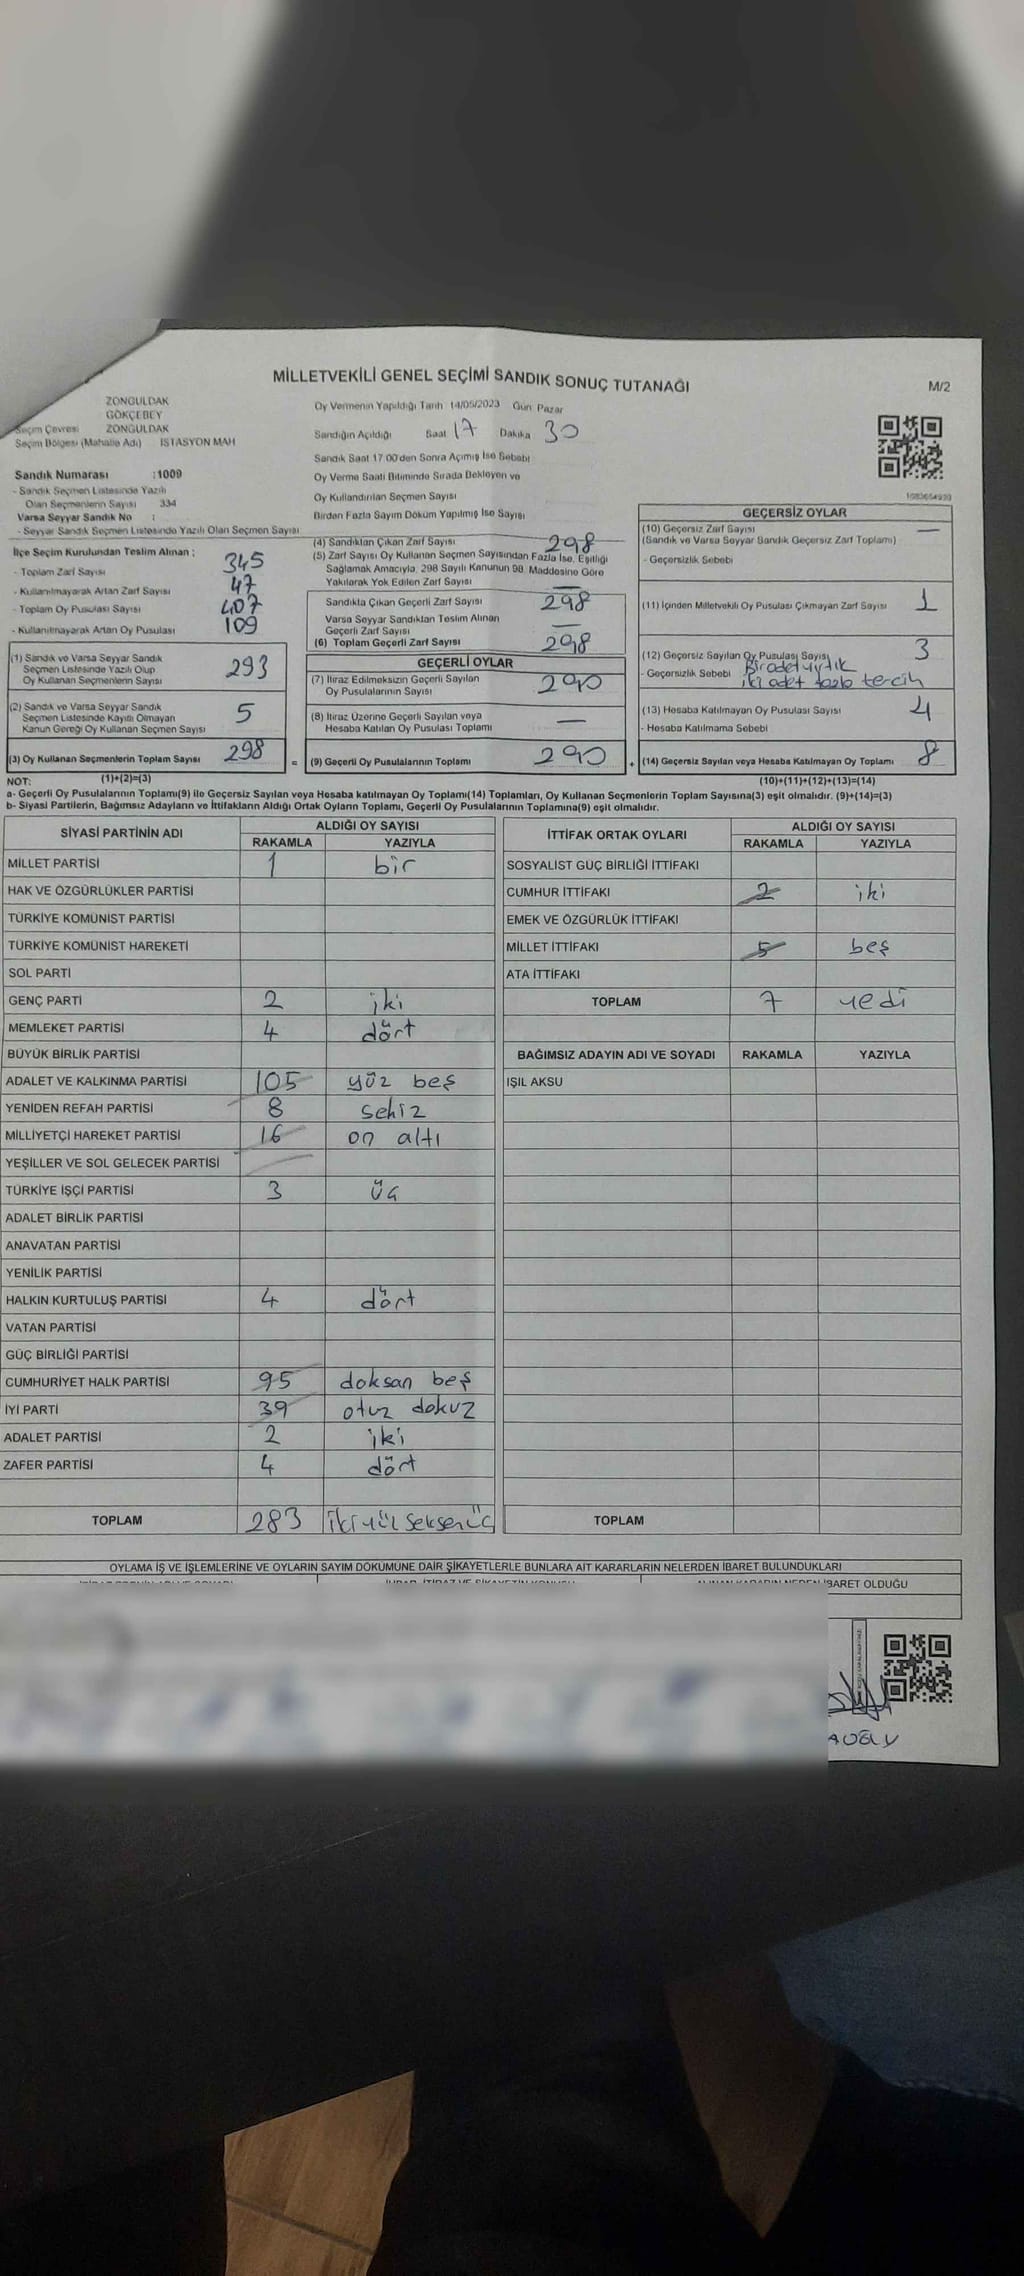 MİLLETVEKİLİ GENEL SEÇİMİ SANDIK SONUÇ TUTANAĞI
M/2
ZONGULDAK
GÖKÇEBEY
Seçim Çevresi ZONGULDAK
Seçim Bölgesi (Mahalle Adı) İSTASYON MAH
Sandık Numarası :1009
- Sandık Seçmen Listesinde Yazılı
Olan Seçmenlerin Sayısı 334
Varsa Seyyar Sandık No :
- Seyyar Sandık Seçmen Listesinde Yazılı Olan Seçmen Sayısı
Oy Vermenin Yapıldığı Tarih 14/05/2023 Gün Pazar
Sandığın Açıldığı Saat 17 Dakika 30
Sandık Saat 17.00'den Sonra Açımış İse Sebebi
Oy Verme Saati Bitiminde Sırada Bekleyen ve
Oy Kullandırılan Seçmen Sayısı
Birden Fazla Sayım Döküm Yapılmış İse Sayısı
İlçe Seçim Kurulundan Teslim Alınan ;
- Toplam Zarf Sayısı 345
- Kullanılmayarak Artan Zarf Sayısı 47
- Toplam Oy Pusulası Sayısı 407
- Kullanılmayarak Artan Oy Pusulası 109
(1) Sandık ve Varsa Seyyar Sandık
Seçmen Listesinde Yazılı Olup
Oy Kullanan Seçmenlerin Sayısı 293
(2) Sandık ve Varsa Seyyar Sandık
Seçmen Listesinde Kayıtlı Olmayan
Kanun Gereği Oy Kullanan Seçmen Sayısı 5
(3) Oy Kullanan Seçmenlerin Toplam Sayısı 298
(4) Sandıktan Çıkan Zarf Sayısı 298
(5) Zarf Sayısı Oy Kullanan Seçmen Sayısından Fazla İse, Eşitliği
Sağlamak Amacıyla, 298 Sayılı Kanunun 98. Maddesine Göre
Yakılarak Yok Edilen Zarf Sayısı —
Sandıkta Çıkan Geçerli Zarf Sayısı 298
Varsa Seyyar Sandıktan Teslim Alınan
Geçerli Zarf Sayısı —
(6) Toplam Geçerli Zarf Sayısı 298
GEÇERLİ OYLAR
(7) İtiraz Edilmeksizin Geçerli Sayılan
Oy Pusulalarının Sayısı 290
(8) İtiraz Üzerine Geçerli Sayılan veya
Hesaba Katılan Oy Pusulası Toplamı —
= (9) Geçerli Oy Pusulalarının Toplamı 290
GEÇERSİZ OYLAR
(10) Geçersiz Zarf Sayısı —
(Sandık ve Varsa Seyyar Sandık Geçersiz Zarf Toplamı)
- Geçersizlik Sebebi
(11) İçinden Milletvekili Oy Pusulası Çıkmayan Zarf Sayısı 1
(12) Geçersiz Sayılan Oy Pusulası Sayısı 3
- Geçersizlik Sebebi Bir adet yırtık
iki adet fazla tercih
(13) Hesaba Katılmayan Oy Pusulası Sayısı 4
- Hesaba Katılmama Sebebi
+ (14) Geçersiz Sayılan veya Hesaba Katılmayan Oy Toplamı 8
NOT: (1)+(2)=(3) (10)+(11)+(12)+(13)=(14)
a- Geçerli Oy Pusulalarının Toplamı(9) ile Geçersiz Sayılan veya Hesaba katılmayan Oy Toplamı(14) Toplamları, Oy Kullanan Seçmenlerin Toplam Sayısına(3) eşit olmalıdır. (9)+(14)=(3)
b- Siyasi Partilerin, Bağımsız Adayların ve İttifakların Aldığı Ortak Oyların Toplamı, Geçerli Oy Pusulalarının Toplamına(9) eşit olmalıdır.
SİYASİ PARTİNİN ADI ALDIĞI OY SAYISI
RAKAMLA YAZIYLA
MİLLET PARTİSİ 1 bir
HAK VE ÖZGÜRLÜKLER PARTİSİ
TÜRKİYE KOMÜNİST PARTİSİ
TÜRKİYE KOMÜNİST HAREKETİ
SOL PARTİ
GENÇ PARTİ 2 iki
MEMLEKET PARTİSİ 4 dört
BÜYÜK BİRLİK PARTİSİ
ADALET VE KALKINMA PARTİSİ 105 yüz beş
YENİDEN REFAH PARTİSİ 8 sekiz
MİLLİYETÇİ HAREKET PARTİSİ 16 on altı
YEŞİLLER VE SOL GELECEK PARTİSİ
TÜRKİYE İŞÇİ PARTİSİ 3 üç
ADALET BİRLİK PARTİSİ
ANAVATAN PARTİSİ
YENİLİK PARTİSİ
HALKIN KURTULUŞ PARTİSİ 4 dört
VATAN PARTİSİ
GÜÇ BİRLİĞİ PARTİSİ
CUMHURİYET HALK PARTİSİ 95 doksan beş
İYİ PARTİ 39 otuz dokuz
ADALET PARTİSİ 2 iki
ZAFER PARTİSİ 4 dört
TOPLAM 283 iki yüz seksen üç
İTTİFAK ORTAK OYLARI ALDIĞI OY SAYISI
RAKAMLA YAZIYLA
SOSYALİST GÜÇ BİRLİĞİ İTTİFAKI
CUMHUR İTTİFAKI 2 iki
EMEK VE ÖZGÜRLÜK İTTİFAKI
MİLLET İTTİFAKI 5 beş
ATA İTTİFAKI
TOPLAM 7 yedi
BAĞIMSIZ ADAYIN ADI VE SOYADI RAKAMLA YAZIYLA
IŞIL AKSU
TOPLAM
OYLAMA İŞ VE İŞLEMLERİNE VE OYLARIN SAYIM DÖKÜMÜNE DAİR ŞİKAYETLERLE BUNLARA AİT KARARLARIN NELERDEN İBARET BULUNDUKLARI
İBARET OLDUĞU